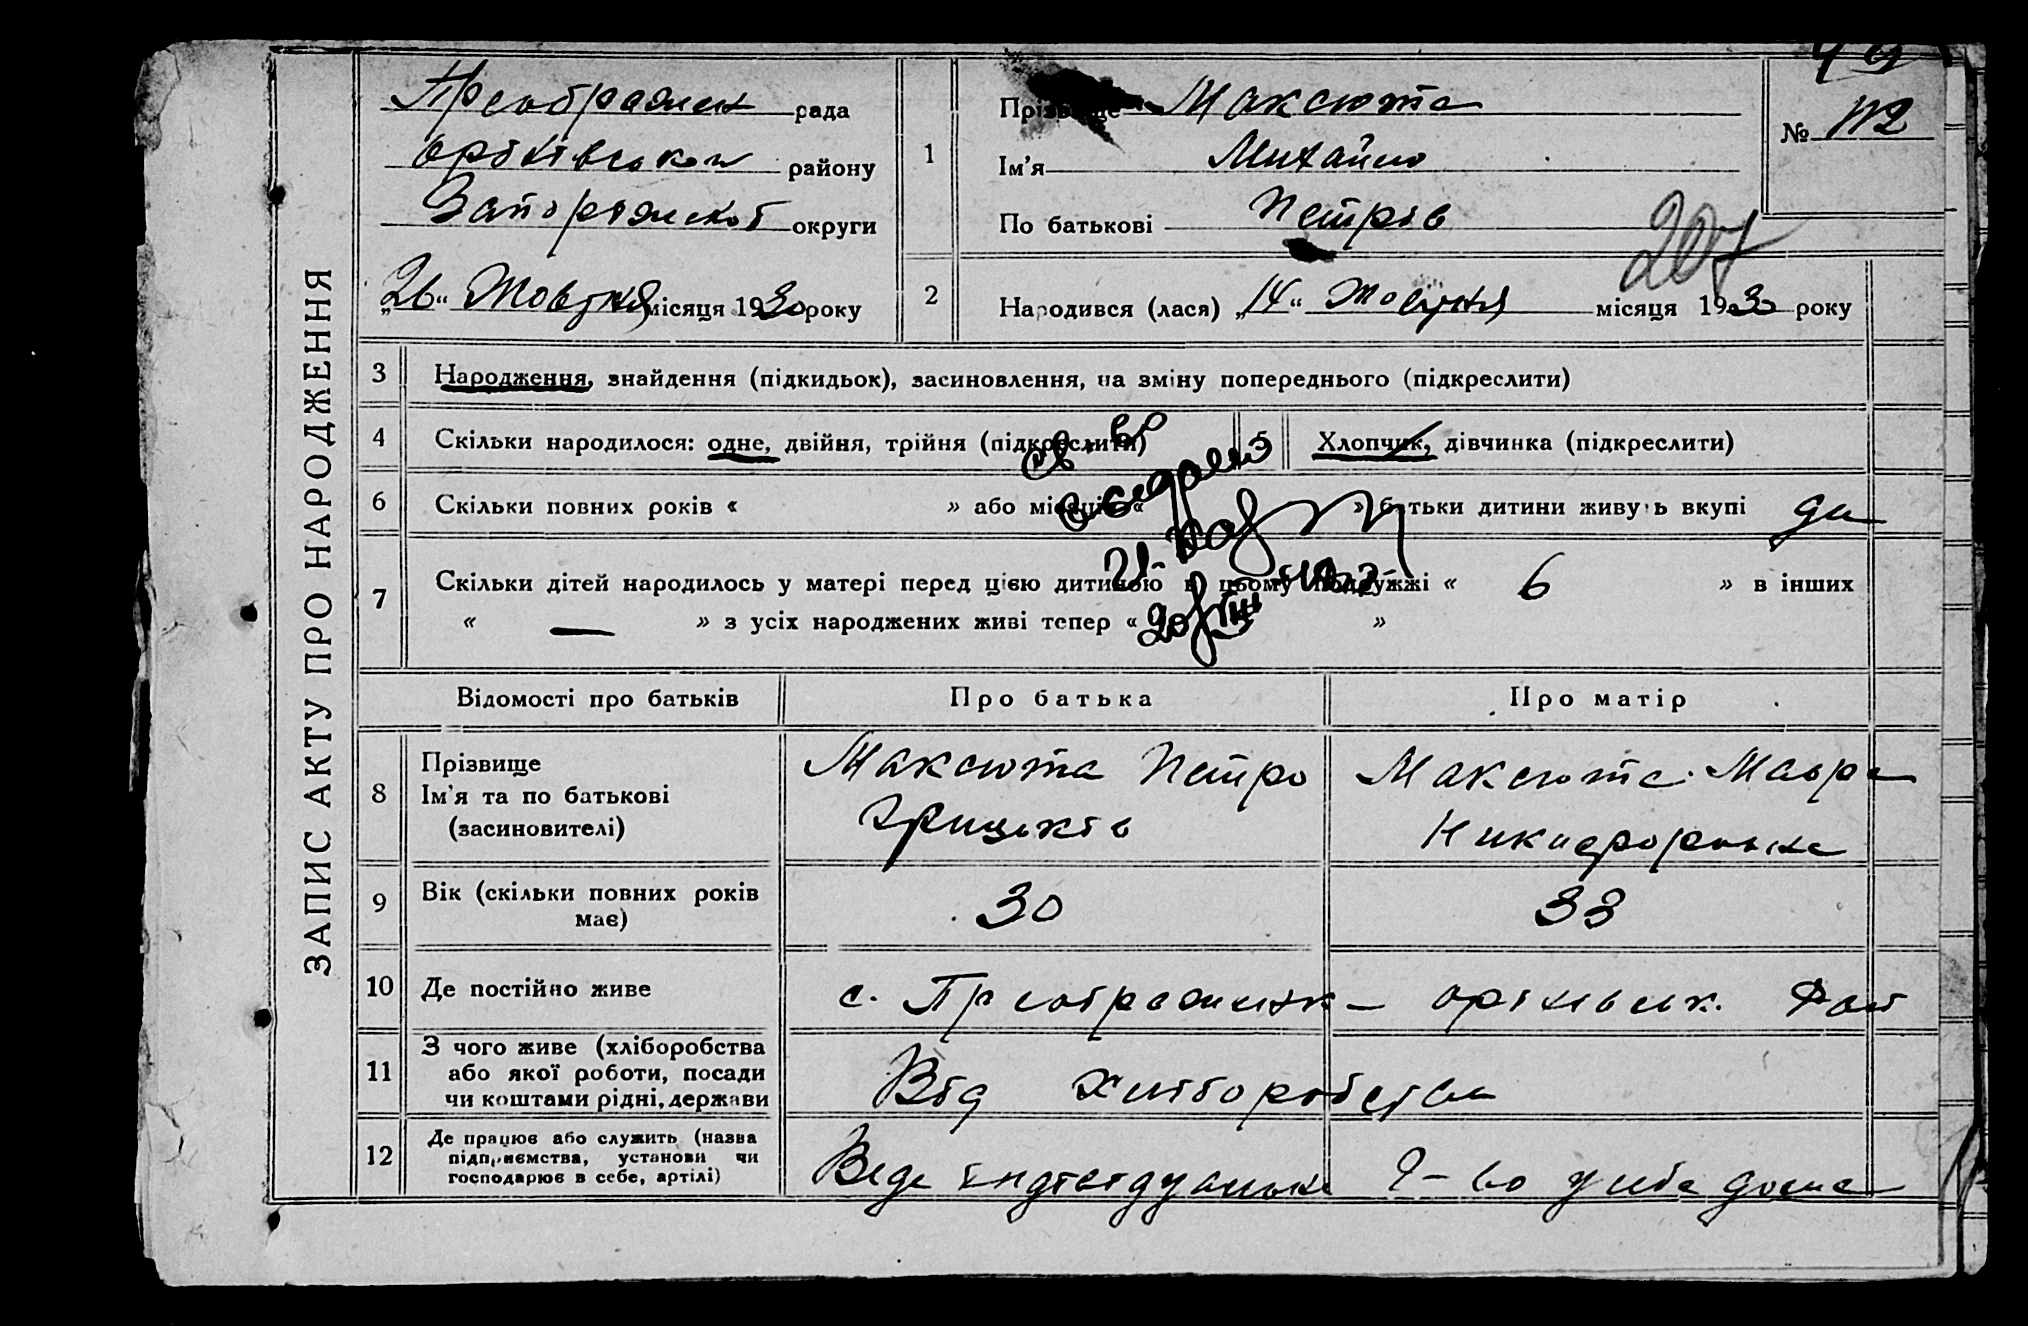 ЗАПИС АКТУ ПРО НАРОДЖЕННЯ
Преображен рада
Оріхівськои району
Запоріжскої округи
„26“ Жовтня місяця 1930 року
1
Прізвище Максюта
Ім'я Михайло
По батькові Петрів
№ 112
207
2
Народився (лася) „14“ Жовтня місяця 1930 року
3
Народження, знайдення (підкидьок), засиновлення, на зміну попереднього (підкреслити)
4
Скільки народилося: одне, двійня, трійня (підкреслити)
5
Хлопчик, дівчинка (підкреслити)
6
Скільки повних років « » або місяців « » батьки дитини живуть вкупі да
7
Скільки дітей народилось у матері перед цією дитиною в цьому подружжі « 6 » в інших
« — » з усіх народжених живі тепер « »
Відомості про батьків
Про батька
Про матір
8
Прізвище
Ім'я та по батькові
(засиновителі)
Максюта Петро
Грицьків
Максюта Мавра
Никифоровна
9
Вік (скільки повних років
має)
30
33
10
Де постійно живе
с. Преображенк – Оріхівськ. Рай
11
З чого живе (хліборобства
або якої роботи, посади
чи коштами рідні, держави
Від хліборобства
12
Де працює або служить (назва
підприємства, установи чи
господарює в себе, артілі)
Веде індівідуальне г-во у себе дома